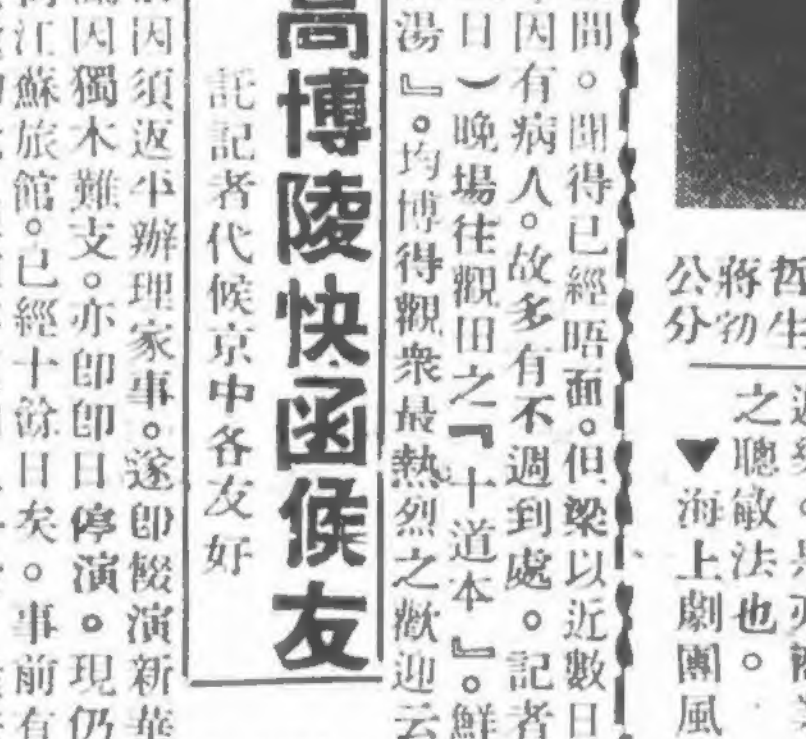 哲生
蔣勃
公分
之聰敏法也。
▼海上劇團風
間。聞得已經晤面。但梁以近數日
因有病人。故多有不週到處。記者
日)晚場往觀田之『十道本』。鮮
湯』。均博得觀衆最熱烈之歡迎云
高博陵快函候友
託記者代候京中各友好
因須返平辦理家事。遂即輟演新華
因獨木難支。亦即即日停演。現仍
江蘇旅館。已經十餘日矣。事前有